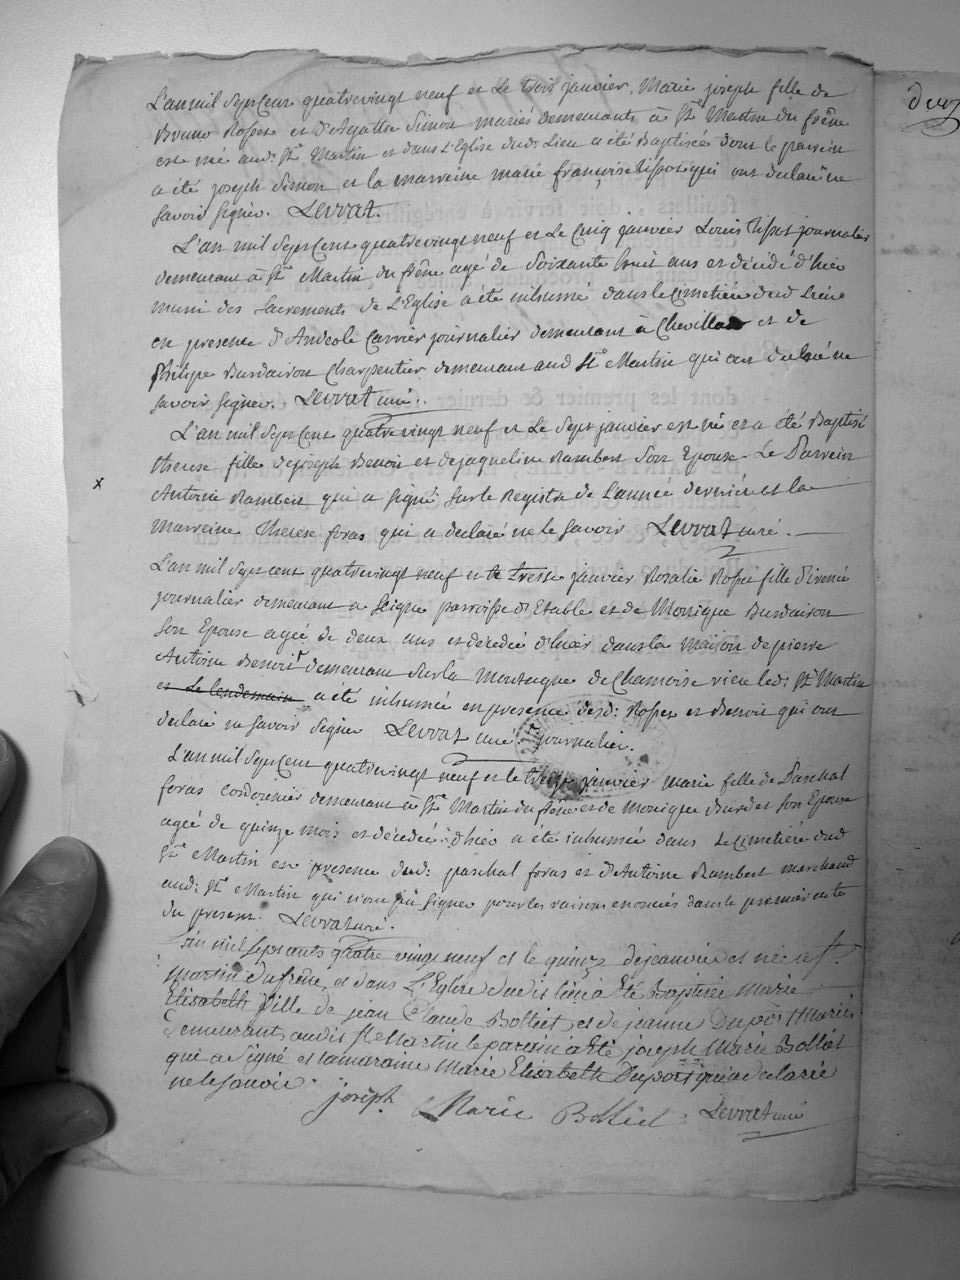 L'an mil Sept Cent quatrevingt neuf et Le trois janvier, Marie joseph fille de
Bruno Rosset et d'Agathe Simon mariés demeurants à St Martin du frêne
est née aud: St Martin et dans L'Eglise dud: Lieu a été Baptisée dont le parrein
a été joseph Simon et la marreine marie françoise tissot qui ont declaré ne
Savoir signer. Levrat.
L'an mil Sept Cent quatrevingt neuf et Le Cinq janvier Louis tissot journalier
demeurant à St Martin du frêne agé de Soixante huit ans et décédé d'hier
muni des Sacrements de L'Eglise a été inhumé dans le Cimetière dud Lieu
en presence d'Andeole Carrier journalier demeurant à Chevillard et de
Philipe Burdairon Charpentier demeurant aud St Martin qui ont declaré ne
Savoir signer. Levrat curé.
L'an mil Sept Cent quatrevingt neuf et Le Sept janvier est née et a été Baptisé
therese fille de joseph Benoit et de jaqueline Rambert Son Epouse. Le Parrein
x
Antoine Rambert qui a signé Sur le Registre de l'année derniere et la
Marreine therese foras qui a declaré ne le Savoir Levrat curé.
L'an mil Sept cent quatrevingt neuf et le treize janvier Rosalie Rosset fille d'irenée
journalier demeurant a Seigne parroisse d'Etable et de Monique Burdairon
Son Epouse agée de deux ans et décédée d'hier dans la maison de pierre
Antoine Benoit demeurant Sur la Montagne de Chamoise riere led: St Martin
et Le lendemain a été inhumée en presence desd: Rosset et Benoit qui ont
declaré ne Savoir Signer Levrat curé. journalier.
L'an mil Sept Cent quatrevingt neuf et le janvier marie fille de Paschal
foras Cordonnier demeurant a St Martin du frene et de monique Burdet Son Epouse
agée de quinze mois et décédée d'hier a été inhumée dans Le Cimetière dud
St Martin en presence dud: paschal foras et d'Antoine Rambert marchand
aud: St Martin qui n'ont pu signer pour les raisons enoncés dans le premier acte
du present. Levrat curé.
L'an mil sept cents quatre vingt neuf et le quinze de janvier est née a St
Martin du frêne et dans L'Eglise dudit lieu a Eté Baptisée Marie
Elisabeth fille de jean Claude Bolliet et de jeanne Dupont Mariés
demeurant audit St Martin le parain a Eté joseph Marie Bolliet
qui a Signé et la maraine Marie Elisabeth Dupont qui a declaré
ne le Savoir. joseph Marie Bolliet Levrat curé